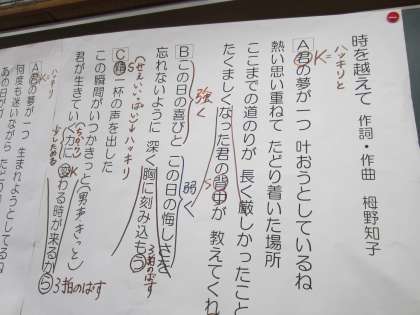 時を越えて 作詞・作曲 栂野知子
ハッキリと
A君の夢が一つ 叶おうとしているね
K=
熱い思い重ねて たどり着いた場所
ここまでの道のりが 長く厳しかったこと
たくましくなった君の背中が 教えてくれ
S
強く 弱く
Bこの日の喜びと この日の悔しさを
忘れないように 深く胸に刻み込もう
3拍のばす
S(せぇいーっぱい)→ハッキリ
C精一杯の声を出した
この瞬間がいつかきっと(男声きっと)
(ちから)
君が生きていく力に 変わる時が来るから
K
3拍のばす
少しためる
ハッキリ
K=
A君の夢が一つ 生まれようとしてるね
何度も迷いながら たどり
あの日が